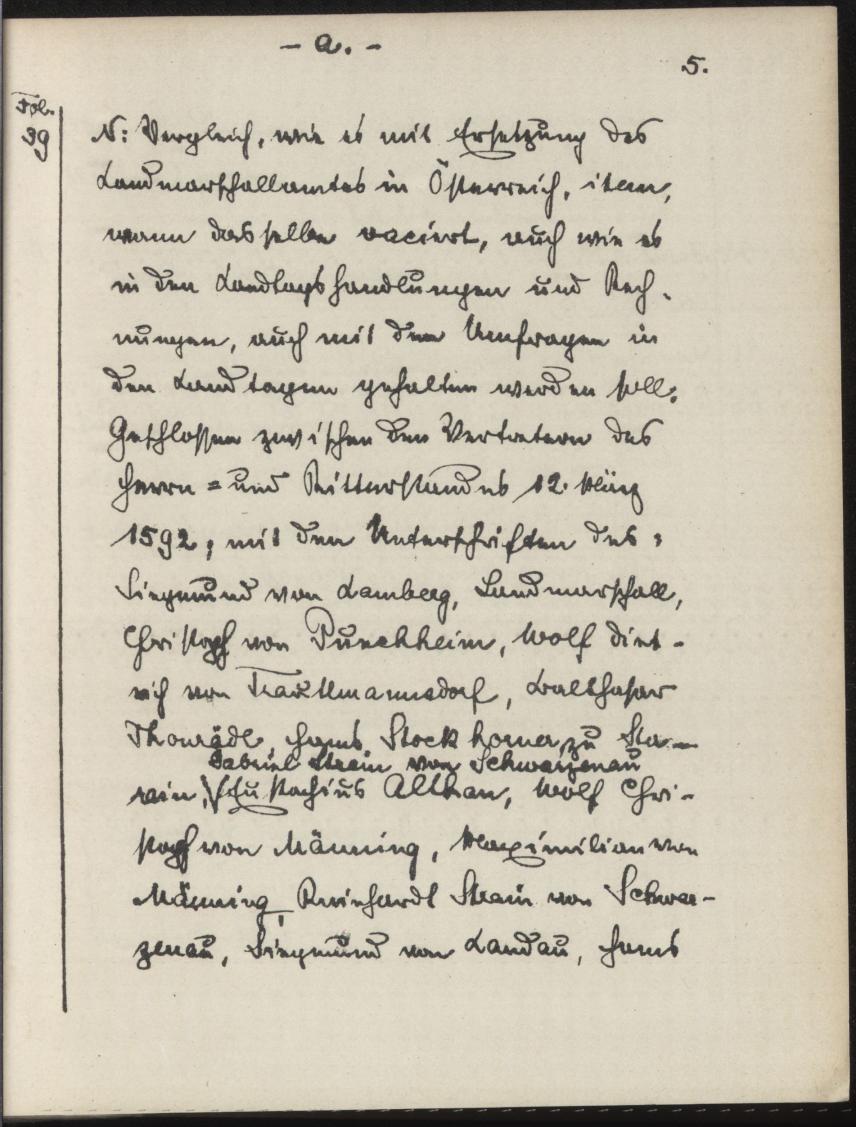 - a. -
5.
Fol.
39
N: Vergleich, wie es mit Ersetzung des
Landmarschallamtes in Österreich, item,
wann dasselbe vaciert, auch wie es
in den Landtagshandlungen und Rech-
nungen, auch mit dem Umfragen in
den Landtagen gehalten werden soll:
Geschlossen zwischen den Vertretern des
Herrn = und Ritterstandes 12. März
1592, mit den Unterschriften des:
Siegmund von Lamberg, Landmarschall,
Christoph von Puechheim, Wolf Diet-
rich von Trauttmannsdorf, Balthasar
Thonrädl, Hans Stockhorner zu Sta-
Gabriel Strein von Schwarzenau
rein, Eustachius Althan, Wolf Chri-
stoph von Mänming, Maximilian von
Mänming, Reinhardt Strein von Schwar-
zenau, Siegmund von Landau, Hans